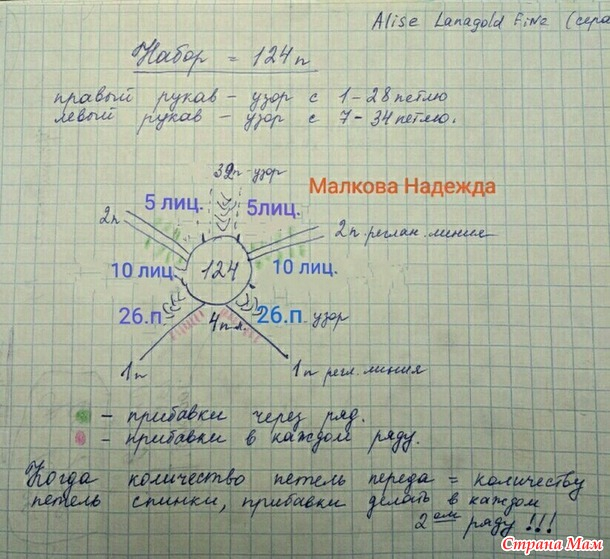 Alise Lanagold Fine (сера
Набор = 124п
правый рукав – узор с 1–28 петлю
левый рукав – узор с 7–34 петлю.
32п-узор
Малкова Надежда
5 лиц. 5лиц.
2п 2п. реглан. линия
10 лиц. 124 10 лиц.
26.п. 4п 26.п. узор
1п 1п регл. линия
– прибавки через ряд.
– прибавки в каждом ряду.
Когда количество петель переда = количеству
петель спинки, прибавки делать в каждом
2ем ряду !!!
Страна Мам